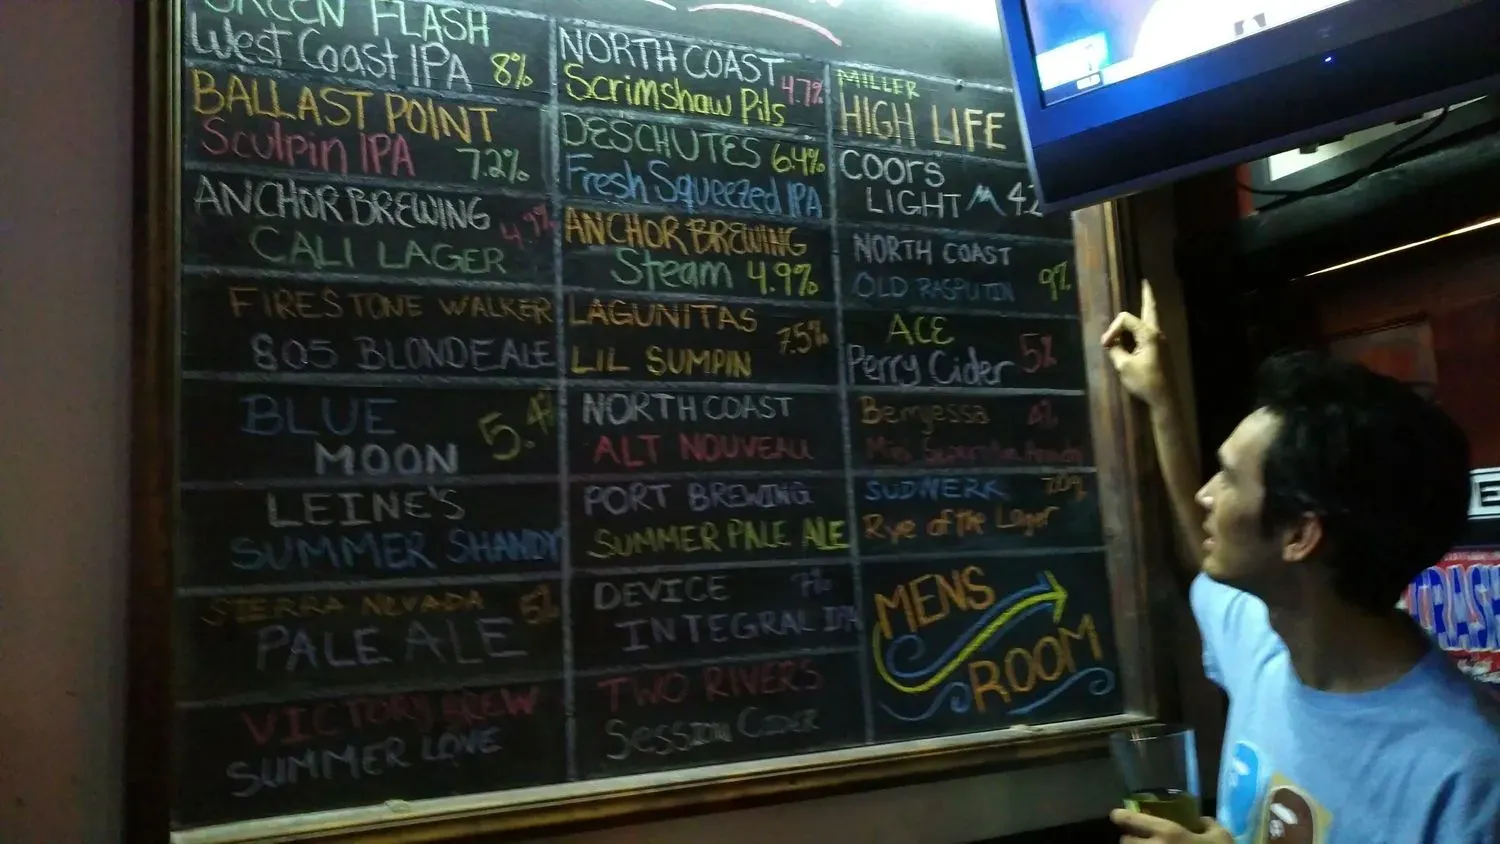 GREEN FLASH
West Coast IPA 8%
BALLAST POINT
Sculpin IPA 7.2%
ANCHOR BREWING 4.9%
CALI LAGER
FIRESTONE WALKER
805 BLONDE ALE
BLUE 5.4%
MOON
LEINE'S
SUMMER SHANDY
SIERRA NEVADA 5%
PALE ALE
VICTORY BREW
SUMMER LOVE
NORTH COAST 4.7%
Scrimshaw Pils
DESCHUTES 6.4%
Fresh Squeezed IPA
ANCHOR BREWING
Steam 4.9%
LAGUNITAS 7.5%
LIL SUMPIN
NORTH COAST
ALT NOUVEAU
PORT BREWING
SUMMER PALE ALE
DEVICE 7%
INTEGRAL IPA
TWO RIVERS
SESSION CIDER
MILLER
HIGH LIFE
COORS
LIGHT 42
NORTH COAST
OLD RASPUTIN 9%
ACE
Perry Cider 5%
Berryessa 4%
SUDWERK
Rye of the Lager
MENS
ROOM